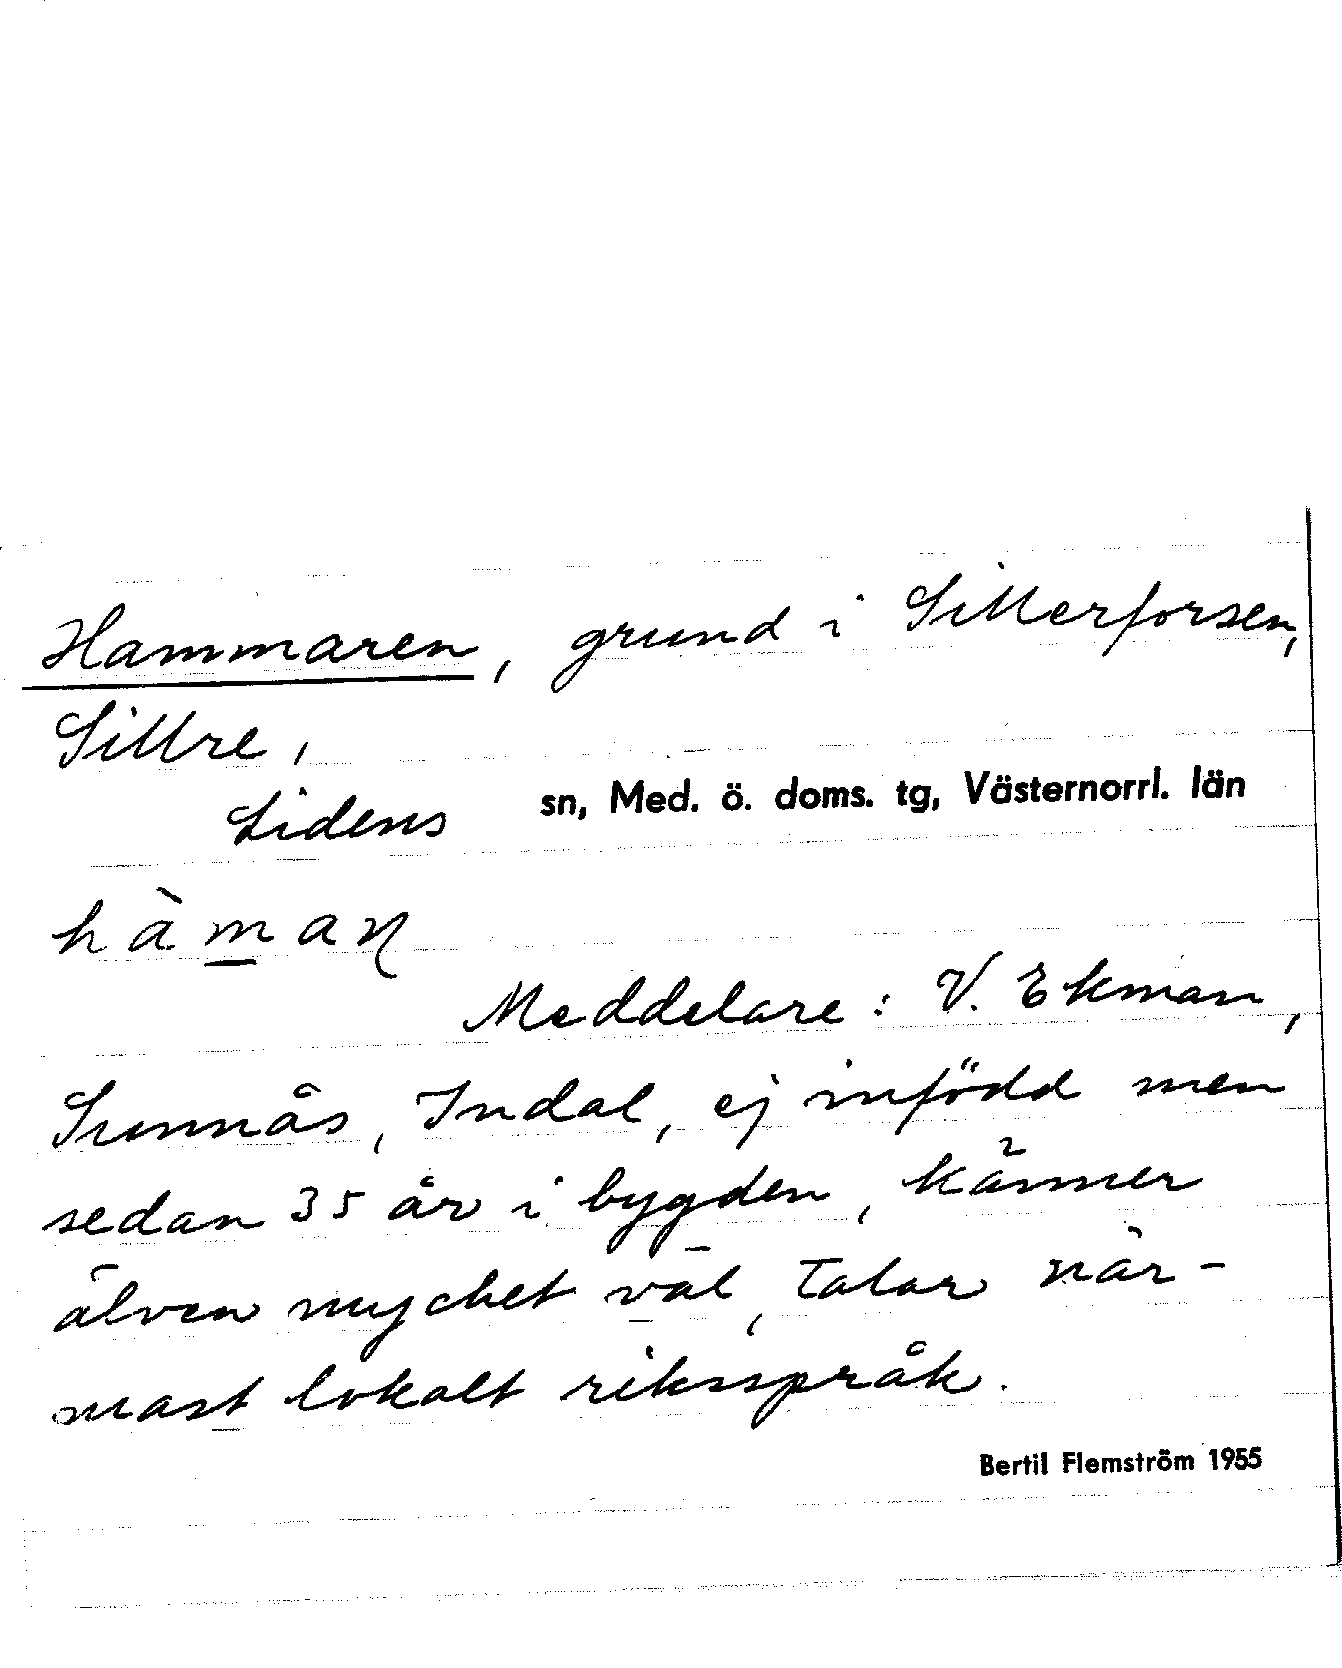 Hammaren, grund i Sillerforsen,
Sillre,
Lidens sn, Med. ö. doms. tg, Västernorrl. län
hàmaɳ
Meddelare: V. Ekman,
Sunnås, Indal, ej infödd men
sedan 35 år i bygden, känner
älven mycket väl, talar när-
mast lokalt riksspråk.
Bertil Flemström 1955